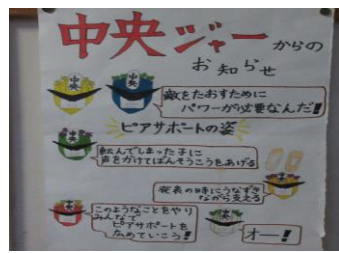 中央ジャーからの
お知らせ
中央
中央
敵をたおすために
パワーが必要なんだ!!
ピアサポートの姿
転んでしまった子に
声をかけてばんそうこうをあげる
発表の時にうなずき
ながら支える
このようなことをやり
みんなで
ピアサポートを
広めていこう!
オー!